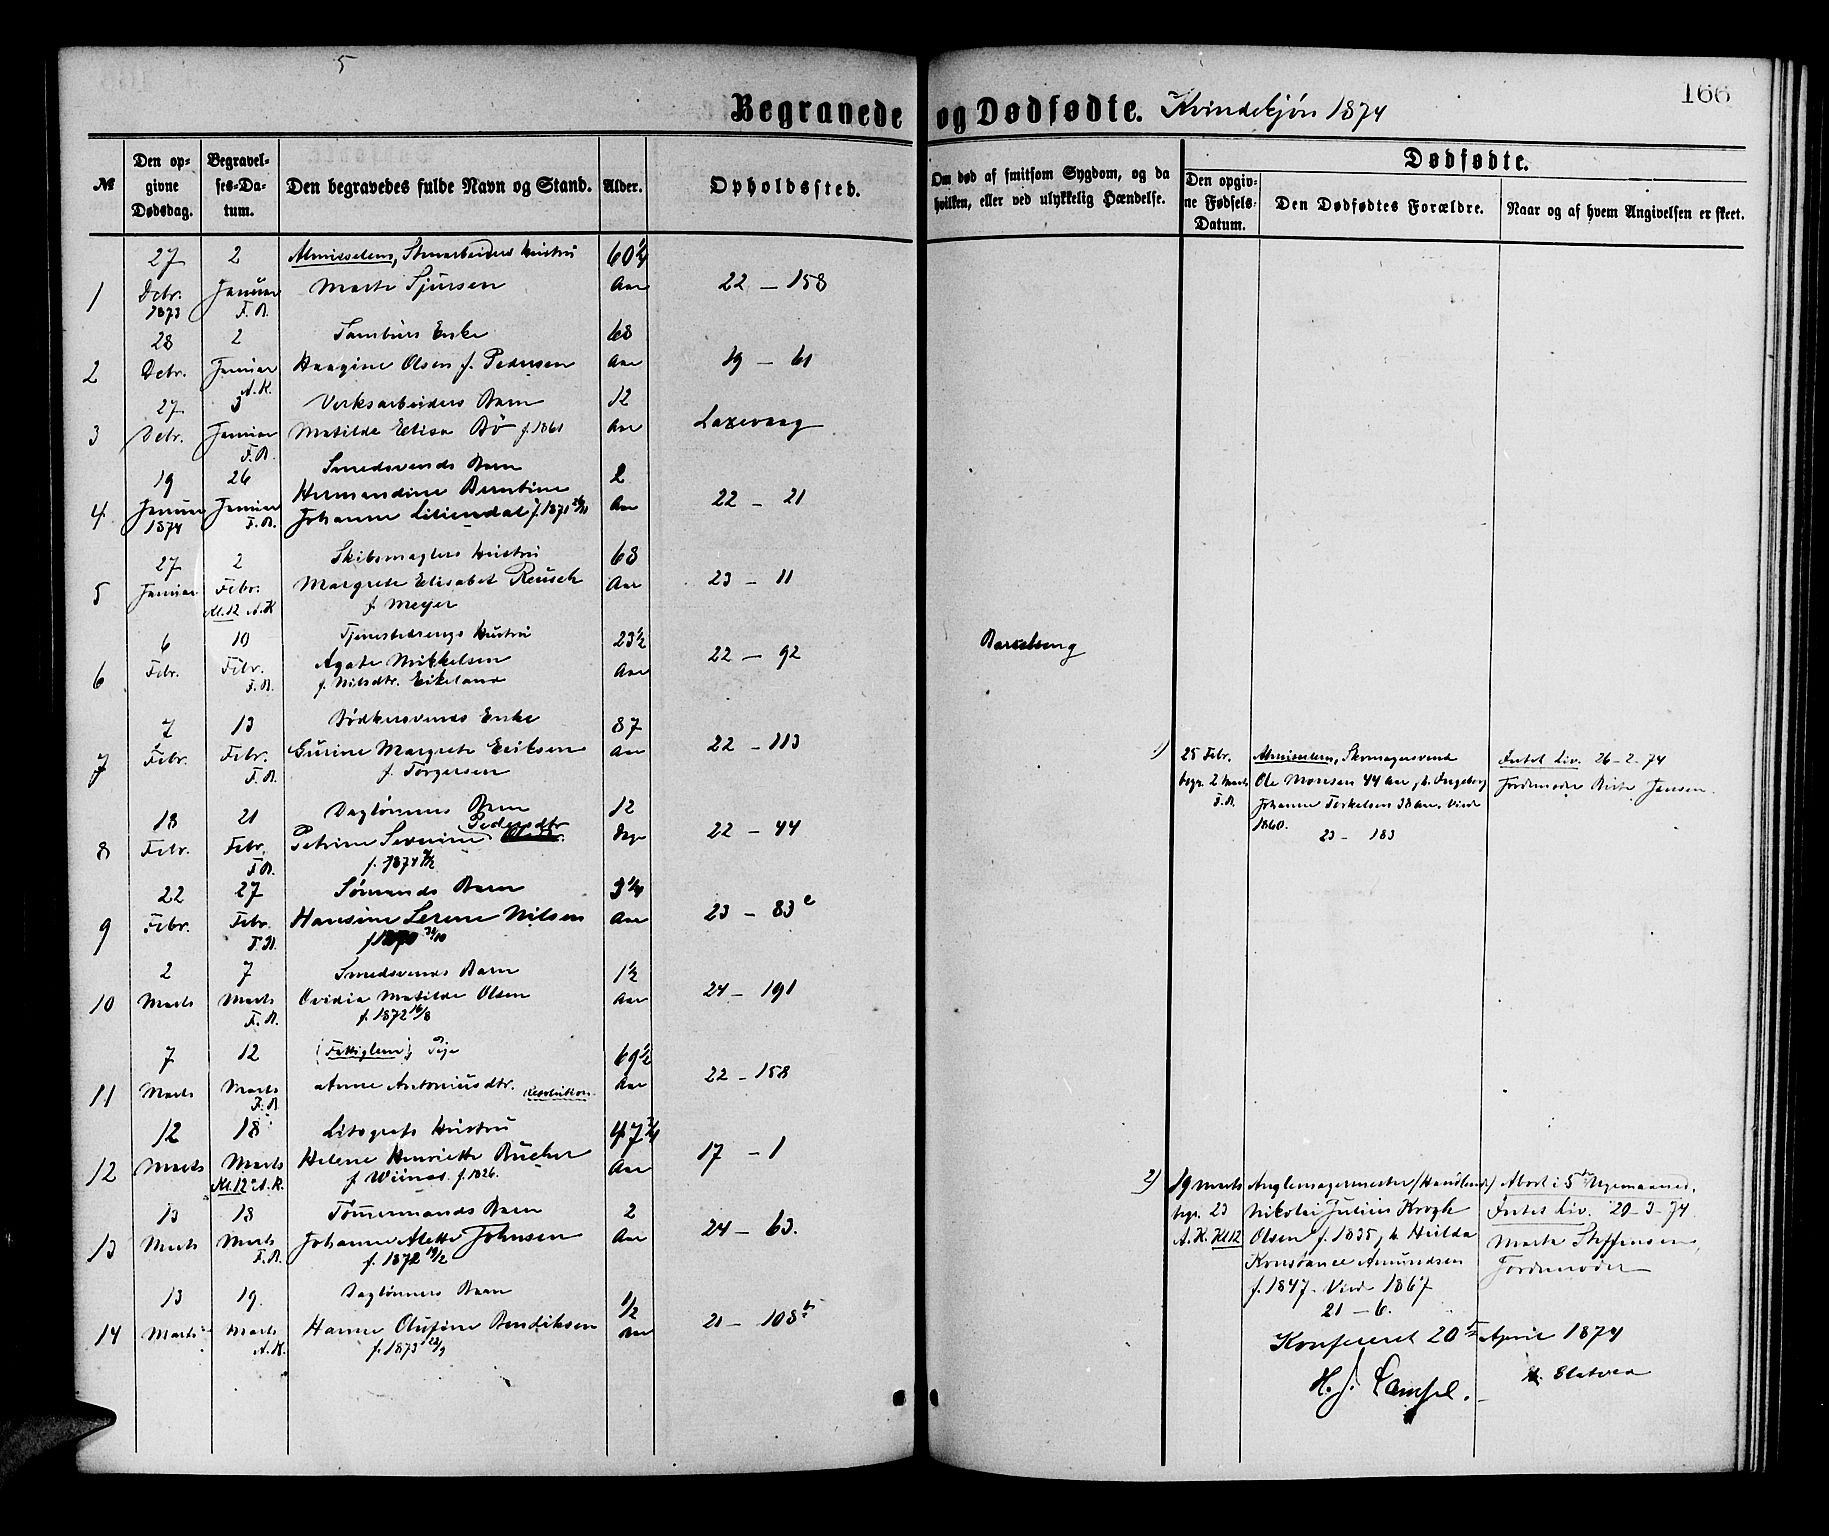 5
166
Begravede og Dødfødte. Kvindekjøn 1874
№
Den op-
givne
Dødsdag.
Begravel-
ses-Da-
tum.
Den begravedes fulde Navn og Stand.
Alder.
Opholdssted.
Om død af smitsom Sygdom, og da
hvilken, eller ved ulykkelig Hændelse.
Dødfødte.
Den opgiv-
ne Fødsels-
Datum.
Den Dødfødtes Forældre.
Naar og af hvem Angivelsen er skeet.
27 2 Almisselem, Stenarbeiders Hustru 60 1/4
1 Decbr. Januar Marte Sjursen Aar 22 – 158
1873 F.B.
28 2 Tamburs Enke 68
2 Decbr. Januar Haagine Olsen f. Pedersen Aar 19 – 61
A.K.
27 3 Verksarbeiders Barn 12
3 Decbr. Januar Matilde Elisa Bö f. 1861 Aar Laxevaag
F.B.
Smedsvends Barn
19 26 Hermandine Berntine 2
4 Januar Januar Johanne Liliendal f. 1871 Aar 22 – 21
1874 F.B.
27 2 Skibsmæglers Hustru 68
5 Januar Febr. Margrete Elisabet Reusch Aar 23 – 11
Kl. 12 A.K f. Meyer
6 10 Tjenestedrengs Hustru 23 1/2
6 Febr. Febr. Agate Mikkelsen Aar 22 – 92 Barselseng
F.B. f. Nilsdtr. Eikeland
7 13 Bödkersvends Enke 87
7 Febr. Febr. Gurine Margrete Eriksen Aar 22 – 113
F.B. f. Torgersen
18 21 Daglönners Barn 12
Pedersdtr
8 Febr. Febr. Petrine Severine Dage 22 – 44
F.B. f. 1874 6/2
22 27 Sömands Barn 3 1/4
9 Febr. Febr. Hansine Serene Nilsen Aar 23 – 83 c
F.B. f. 1870 /10
2 7 Smedsvends Barn 1 1/2
10 Marts Marts Ovidia Matilde Olsen Aar 24 – 191
F.B. f. 1872 16/8
7 12 (Fattiglem) Pige 69 1/2
11 Marts Marts Anne Antoniusdtr. Aar 22 – 158
F.B.
12 18 Litografs Hustru 47 3/4
12 Marts Marts Helene Henriette Bucher Aar 17 – 1
Kl. 12 A.K. f. f. 1826.
13 18 Tömmermands Barn 2
13 Marts Marts Johanne Alette Johnsen Aar 24 – 63.
F.B. f. 1872 19/2
13 19. Daglönners Barn 1/2
14 Marts Marts Hanne Olufine Bendiksen Aar 21 – 108 b
A.K. f. 1873 22/9
1) 25 Febr.
begr. 2 Marts
F.B
Almisselem, Skomagersvend
Ole Monsen 44 Aar, h. Ingeborg
Johanne Terkelsen 38 Aar. Viede
1860.
23 – 183
Intet Liv. 26-2-74
Jordemoder Birte Jansen.
2) 19 Marts
begr. 23
A.K. Kl 12
Anglemagermester (Handlende)
Nikolai Julius Krogh
Olsen f. 1835, h. Hulda
Konstance Amundsen
f. 1847. Viede 1867
21 – 6.
Abort i 5te Ugemaaned.
Intet Liv. 20-3-74.
Marte Steffensen,
Jordemoder
Konfereret 20de April 1874
H. J.